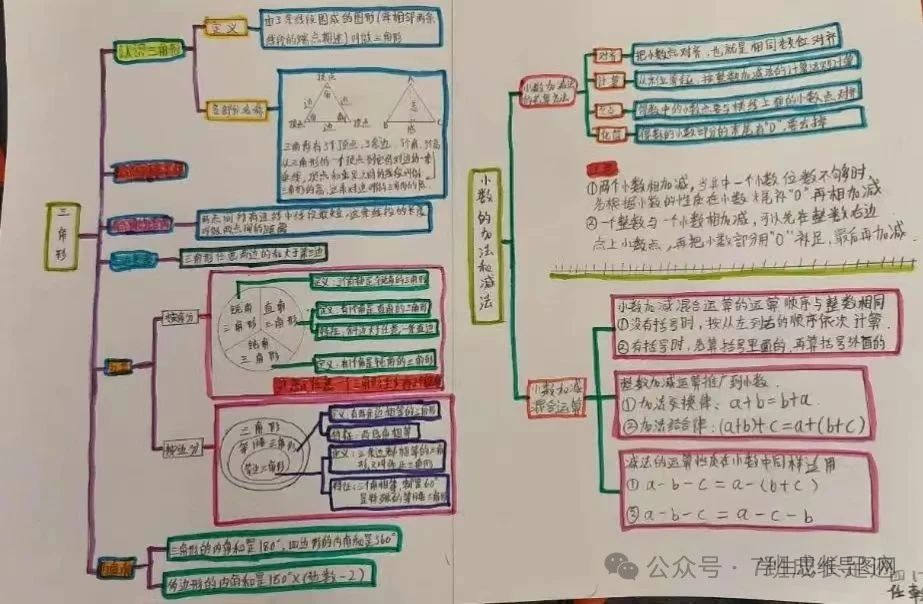 三角形
认识三角形
定义
由3条线段围成的图形(每相邻两条
线段的端点相连)叫做三角形
各部分名称
顶点
角
边
边
角
角
顶点
边
顶点
A
高
B
底
C
三角形有3个顶点,3条边,3个角,3条高
从三角形的一个顶点到它的对边的一条
垂线,顶点和垂足之间的线段叫做
三角形的高,这条对边叫做三角形的底
两点间所有连线中线段最短,这条线段的长度
叫做两点间的距离
三角形任意两边的和大于第三边
分类
按角分
锐角
三角形
直角
三角形
钝角
三角形
定义:3个角都是锐角的三角形
定义:有1个角是直角的三角形
定义:有1个角是钝角的三角形
按边分
三角形
等腰三角形
等边三角形
定义:有两条边相等的三角形
特征:两底角相等
定义:三条边都相等的三角
形,又叫做正三角形
特征:三个角相等,都是60°
是特殊的等腰三角形
内角和
三角形的内角和是180°,四边形的内角和是360°
多边形的内角和是180°×(边数-2)
小数的加法和减法
小数加减法
的计算方法
对齐
把小数点对齐,也就是相同数位对齐
计算
从末位算起,按整数加减法的计算法则计算
得数中的小数点要与横线上的小数点对齐
化简
得数的小数部分的末尾有"0",要去掉
注意
①两个小数相加减,当其中一个小数位数不够时,
先根据小数的性质在小数末尾补"0"再相加减
②一个整数与一个小数相加减,可以先在整数右边
点上小数点,再把小数部分用"0"补足,最后再加减.
小数加减
混合运算
小数加减混合运算的运算顺序与整数相同
①没有括号时,按从左到右的顺序依次计算.
②有括号时,先算括号里面的,再算括号外面的
整数加减运算推广到小数.
①加法交换律:a+b=b+a.
②加法结合律:(a+b)+c=a+(b+c)
减法的运算性质在小数中同样适用
①a-b-c=a-(b+c)
②a-b-c=a-c-b
公众号·
学生思维导图网